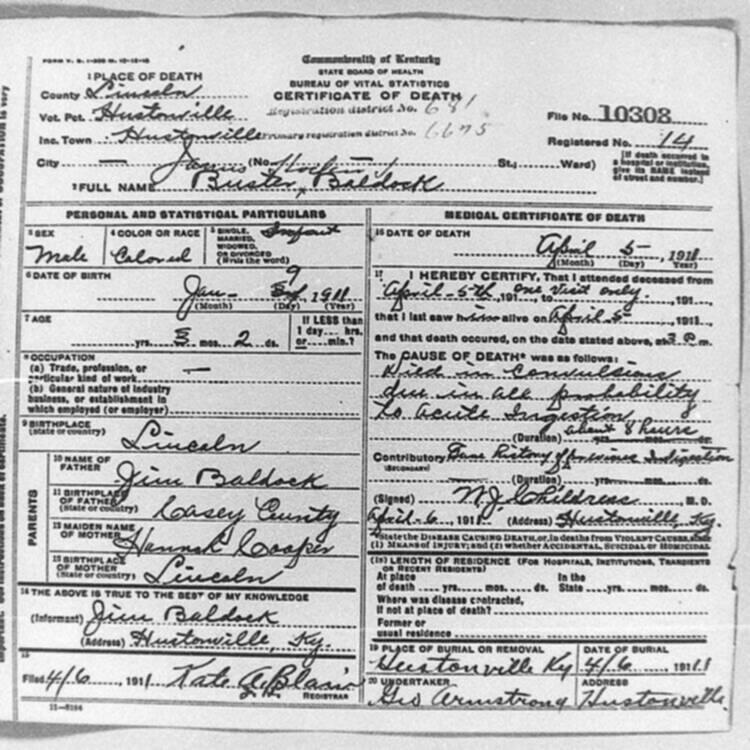 FORM V. S. 1-
Commonwealth of Kentucky
STATE BOARD OF HEALTH
BUREAU OF VITAL STATISTICS
CERTIFICATE OF DEATH
1 PLACE OF DEATH
County Lincoln
Vot. Pct. Hustonville
Inc. Town Hustonville
City —
Registration district No. 681
Primary registration district No. 6675
File No. 10308
Registered No. 14
(No. St.; Ward)
[If death occurred in a hospital or institution, give its NAME instead of street and number.]
2 FULL NAME James Buster Baldock
PERSONAL AND STATISTICAL PARTICULARS
3 SEX
Male
4 COLOR OR RACE
Colored
5 SINGLE, MARRIED, WIDOWED, OR DIVORCED (Write the word)
Infant
6 DATE OF BIRTH
Jan. 9, 1911
(Month) (Day) (Year)
7 AGE
yrs. mos. 2 ds.
If LESS than 1 day... hrs. or... min.?
8 OCCUPATION
(a) Trade, profession, or particular kind of work —
(b) General nature of industry business, or establishment in which employed (or employer)
9 BIRTHPLACE
(State or country)
Lincoln
PARENTS
10 NAME OF FATHER
Jim Baldock
11 BIRTHPLACE OF FATHER
(State or country)
Casey County
12 MAIDEN NAME OF MOTHER
Hannah Cooper
13 BIRTHPLACE OF MOTHER
(State or country)
Lincoln
14 THE ABOVE IS TRUE TO THE BEST OF MY KNOWLEDGE
(Informant) Jim Baldock
(Address) Hustonville, Ky.
15
Filed 4/6, 1911 Kate A. Blain
REGISTRAR
11-5184
MEDICAL CERTIFICATE OF DEATH
16 DATE OF DEATH
April 5, 1911
(Month) (Day) (Year)
17 I HEREBY CERTIFY, That I attended deceased from
April 5th, 191, to One visit only. 191
that I last saw him alive on April 5, 1911,
and that death occured, on the date stated above, at 3 P m.
The CAUSE OF DEATH* was as follows:
Died in Convulsions
due in all probability
to acute Ingestion
about 8 hours
(Duration) yrs. mos. ds.
Contributory history of previous Indigestion
(SECONDARY)
(Duration) yrs. mos. ds.
(Signed) W.J. Childress, M. D.
April-6, 1911 (Address) Hustonville, Ky.
*State the DISEASE CAUSING DEATH, or, in deaths from VIOLENT CAUSES, state
(1) MEANS OF INJURY; and (2) whether ACCIDENTAL, SUICIDAL or HOMICIDAL
LENGTH OF RESIDENCE (FOR HOSPITALS, INSTITUTIONS, TRANSIENTS
OR RECENT RESIDENTS)
At place of death yrs. mos. ds. In the State yrs. mos. ds.
Where was disease contracted,
if not at place of death?
Former or
usual residence
19 PLACE OF BURIAL OR REMOVAL
Hustonville Ky
DATE OF BURIAL
4/6 1911
20 UNDERTAKER
Geo Armstrong
ADDRESS
Hustonville